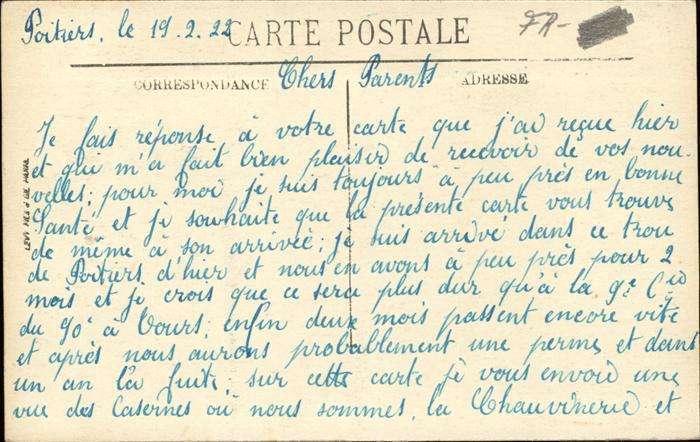 Poitiers, le 19.2.22
CARTE POSTALE
FR-
CORRESPONDANCE
Chers Parents
ADRESSE
Je fais réponse à votre carte que j'ai reçue hier
et qui m'a fait bien plaisir de recevoir de vos nou-
velles; pour moi je suis toujours à peu près en bonne
Santé et je souhaite que la présente carte vous trouve
de même à son arrivée; je suis arrivé dans ce trou
de Poitiers d'hier et nous en avons à peu près pour 2
mois et je crois que ce sera plus dur qu'à la 9e Cie
du 90e à Tours; enfin deux mois passent encore vite
et après nous aurons probablement une perme, et dans
un an la fuite; sur cette carte je vous envoie une
vue des Casernes où nous sommes, la Chauvinerie et